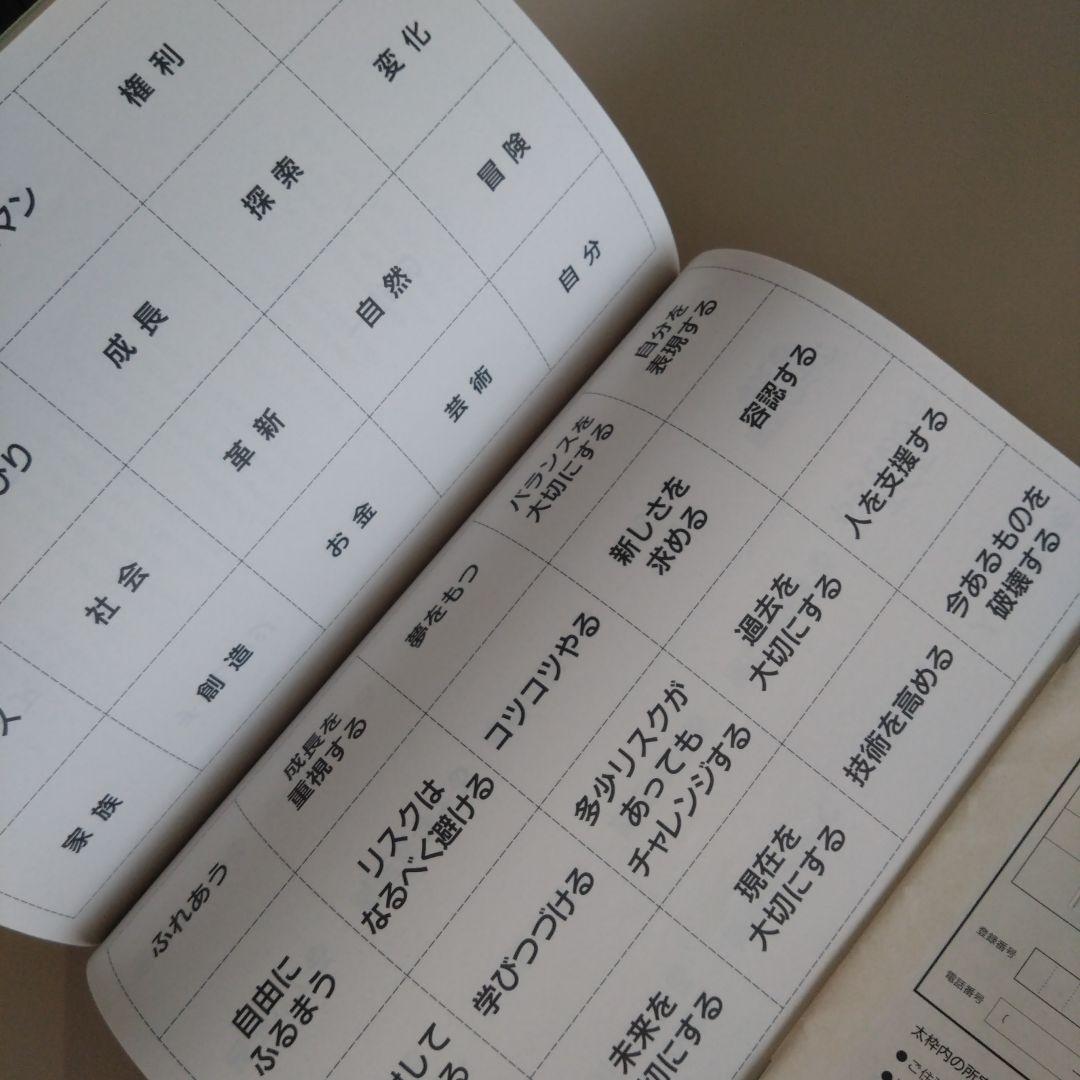 権利
変化
マン
探索
冒険
成長
自然
自分
革新
芸術
社会
お金
創造
家族
自分を
表現する
容認する
人を支援する
今あるものを
破壊する
バランスを
大切にする
新しさを
求める
過去を
大切にする
技術を高める
夢をもつ
コツコツやる
多少リスクが
あっても
チャレンジする
現在を
大切にする
成長を
重視する
リスクは
なるべく避ける
学びつづける
未来を
切にする
ふれあう
自由に
ふるまう
して
る
登録番号
電話番号
(
太枠内の所
●ご住